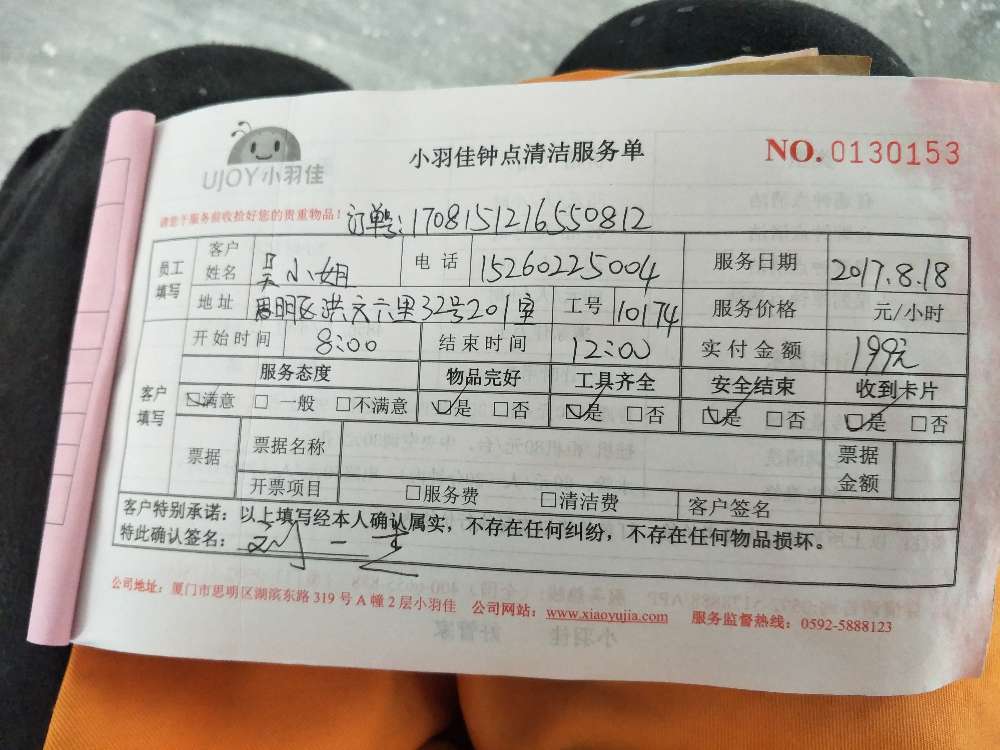 UJOY小羽佳
小羽佳钟点清洁服务单
NO.0130153
请您于服务前收检好您的贵重物品！
订单号:1708151216550812
员工填写 客户姓名 吴小姐 电话 15260225004 服务日期 2017.8.18
地址 思明区洪文六里32号201室 工号 10174 服务价格 元/小时
客户填写 开始时间 8:00 结束时间 12:00 实付金额 199元
服务态度 物品完好 工具齐全 安全结束 收到卡片
☑满意 □一般 □不满意 ☑是 □否 ☑是 □否 ☑是 □否 ☑是 □否
票据 票据名称 票据金额
开票项目 □服务费 □清洁费 客户签名
客户特别承诺：以上填写经本人确认属实，不存在任何纠纷，不存在任何物品损坏。
特此确认签名：
公司地址：厦门市思明区湖滨东路319号A幢2层小羽佳 公司网站：www.xiaoyujia.com 服务监督热线：0592-5888123